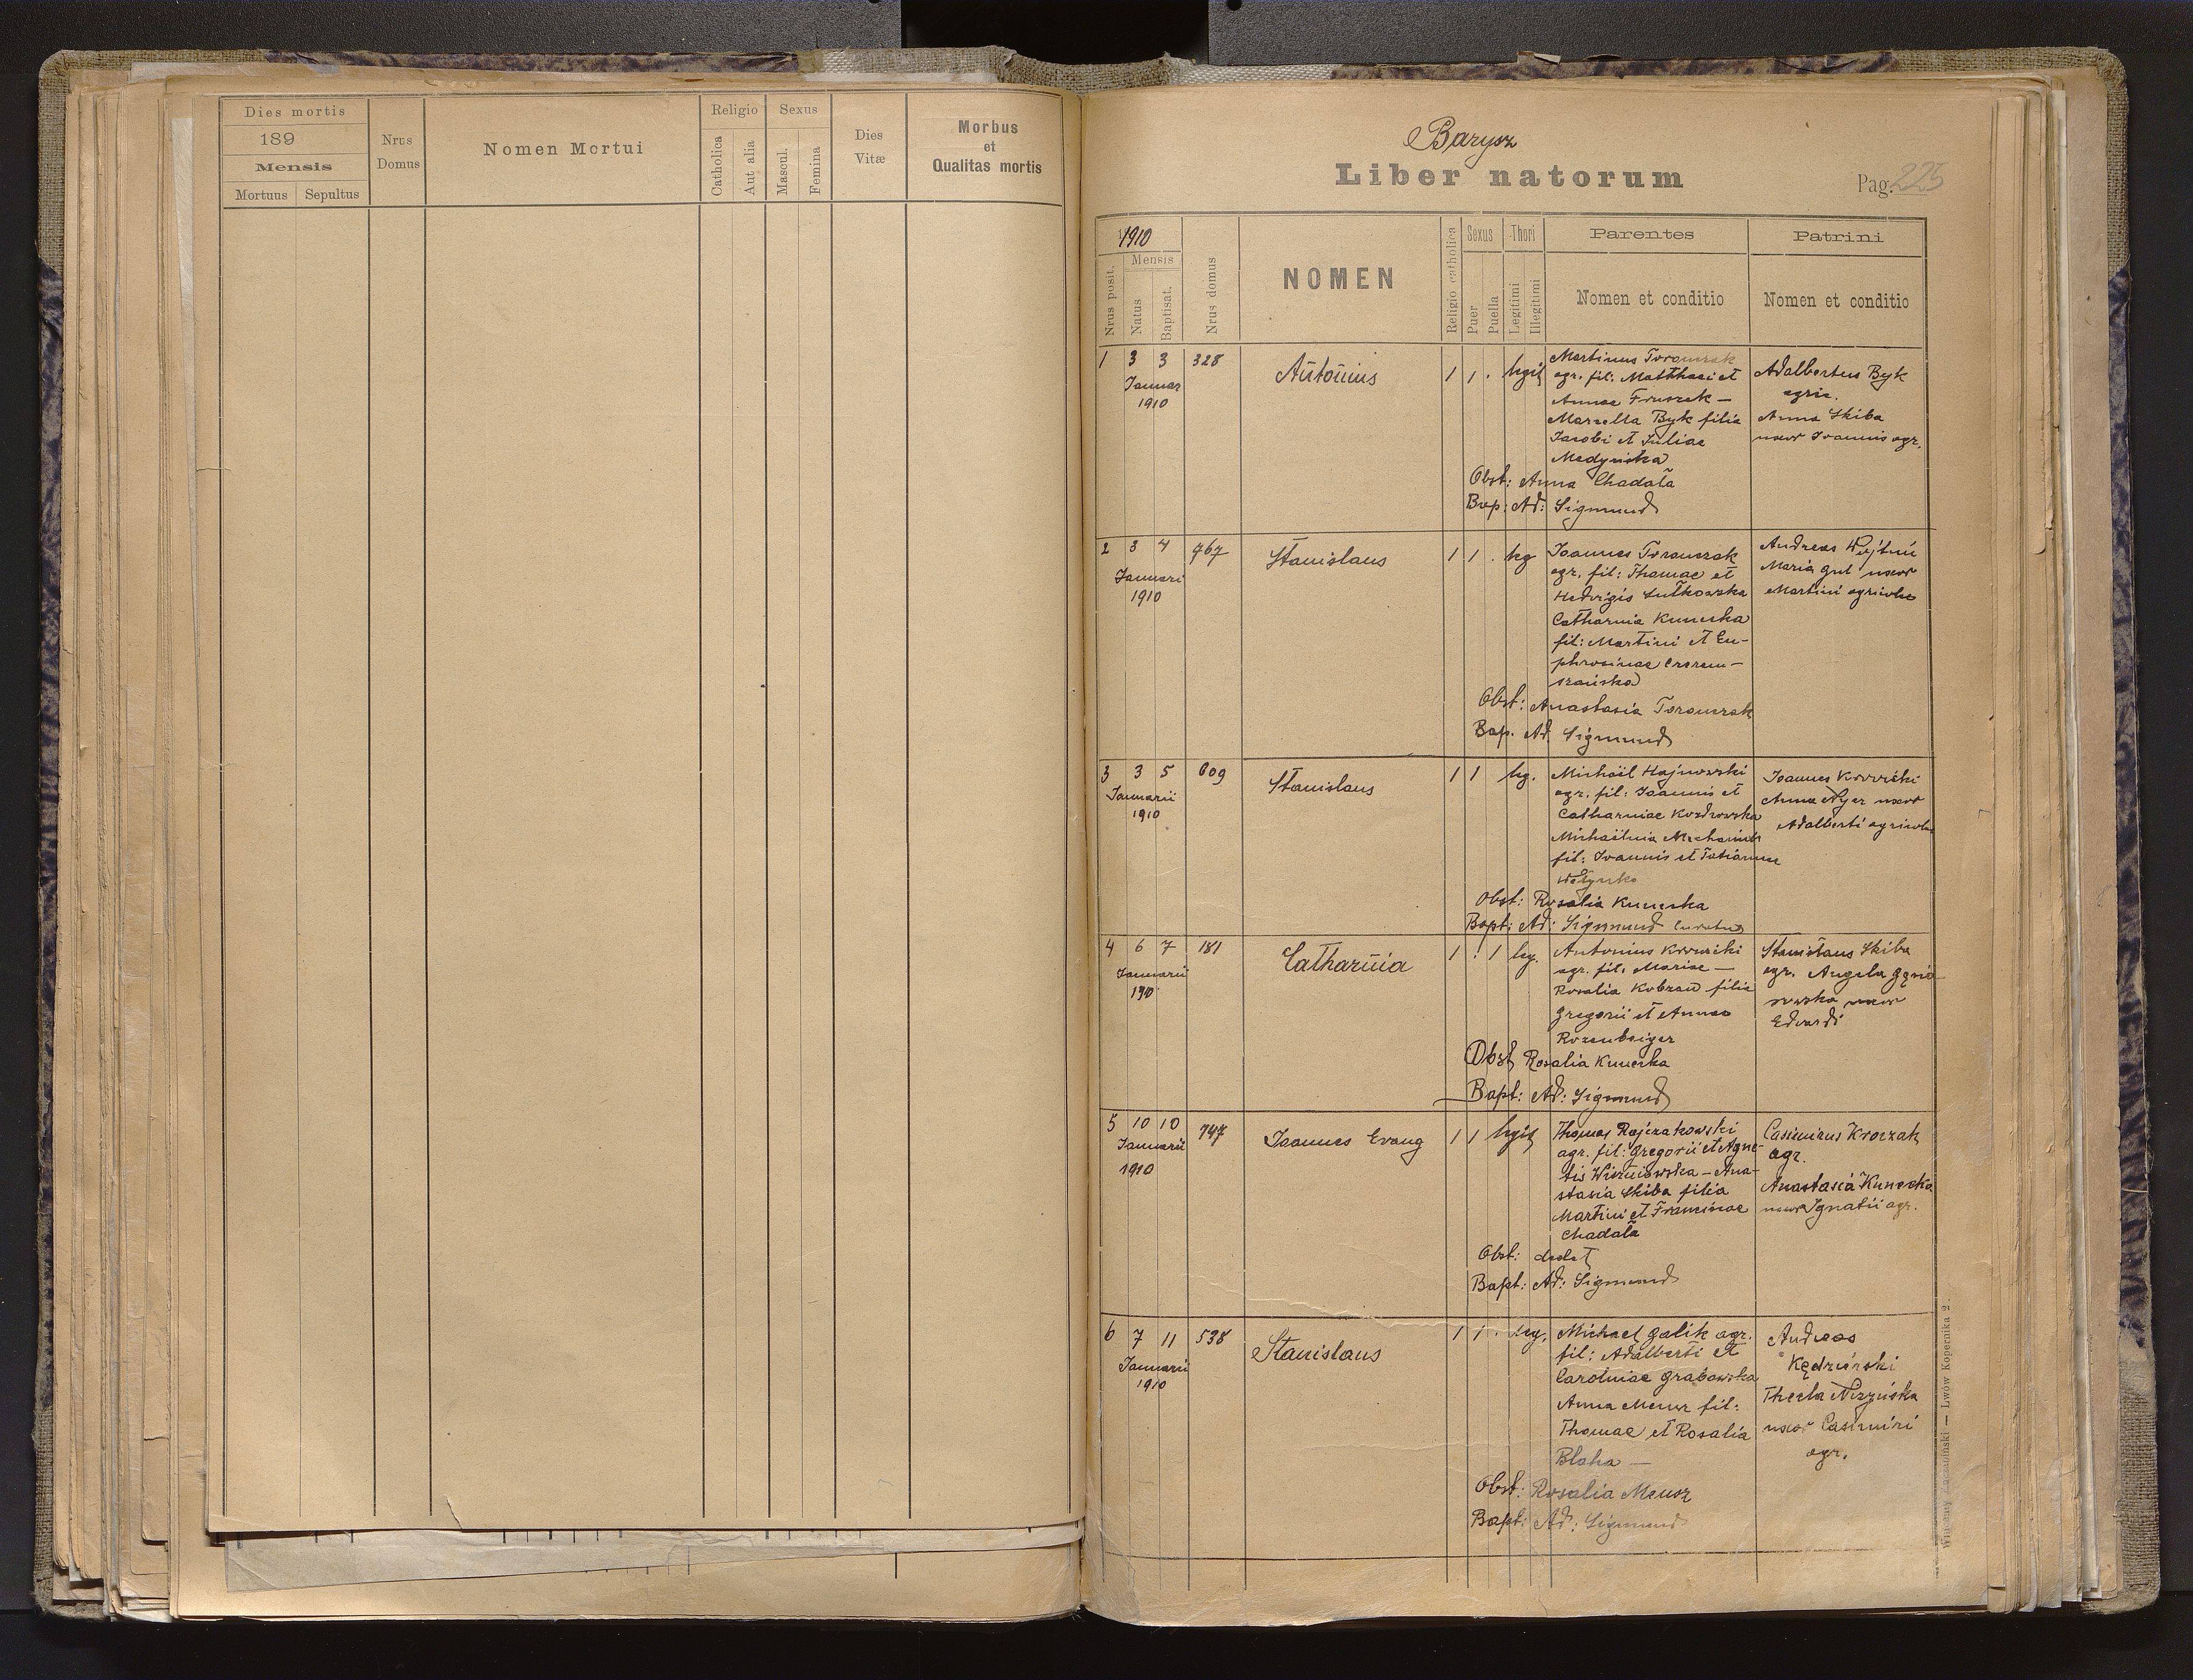 Dies mortis
189
Mensis
Mortuus Sepultus
Nrus Domus
Nomen Mortui
Religio
Catholica
Aut alia
Sexus
Mascul.
Femina
Dies Vitæ
Morbus
et
Qualitas mortis
Barysz
Liber natorum
Pag. 225
1910
Mensis
Nrus posit.
Natus
Baptisat.
Nrus domus
NOMEN
Religio catholica
Sexus
Puer
Puella
Thori
Legitimi
Illegitimi
Parentes
Nomen et conditio
Patrini
Nomen et conditio
1 3 3 328
Januar
1910
Antonius
1 1 . legit
Martinus
agr. fil: Matthaei et
Annae
Marcella Byk filia
Jacobi et Juliae
Medyńska
Obst: Anna Chadała
Bap: Ad: Sigmund
Adalbertus Byk
agric.
Anna Skiba
uxor Joannis agr.
2 3 4 767
Januari
1910
Stanislaus
1 1 . leg
Joannes
agr. fil: Thomae et
Hedvigis Lutkowska
Catharina Kunecka
fil: Martini et Eu-
phrosinae Czerem-
szańska
Obst: Anastasia
Bap. Ad. Sigmund
Andreas
Maria Gul uxor
Martini agricolae
3 3 5 609
Januarii
1910
Stanislaus
1 1 leg.
Michaël Hajnowski
agr. fil: Joannis et
Catharinae Kozdrowska
Michaëlina
fil: Joannis et Tatiannae
Obst: Rosalia Kunecka
Bapt: Ad: Sigmund
Joannes
Anna uxor
Adalberti agricolae
4 6 7 181
Januarii
190
Catharina
1 . 1 leg.
Antonius
agr. fil. Mariae —
Rosalia filia
Gregorii et Annae
Obst Rosalia Kunecka
Bapt: Ad: Sigmund
Stanislaus Skiba
agr. Angela
uxor
Edvardi
5 10 10 747
Januarii
1910
Joannes Evang
1 1 legit
Thomas Rajczakowski
agr. fil: Gregorii et Agne-
tis Wiszniowska — Ana-
stasia Skiba filia
Martini et Franciscae
Chadała
Obst: dedet
Bapt: Ad: Sigmund
Casimirus Kroczak
agr.
Anastasia Kunecka
uxor Ignatii agr.
6 7 11 538
Januarii
1910
Stanislaus
1 1 . leg.
Michael Galik agr.
fil: Adalberti et
Carolinae Grabowska
Anna Meusz fil:
Thomae et Rosalia
Blaha —
Obst: Rosalia Meusz
Bapt: Ad: Sigmund
Andreas
Kędzierski
Thecla
uxor Casimiri
agr.
— Lwów Kopernika 2.